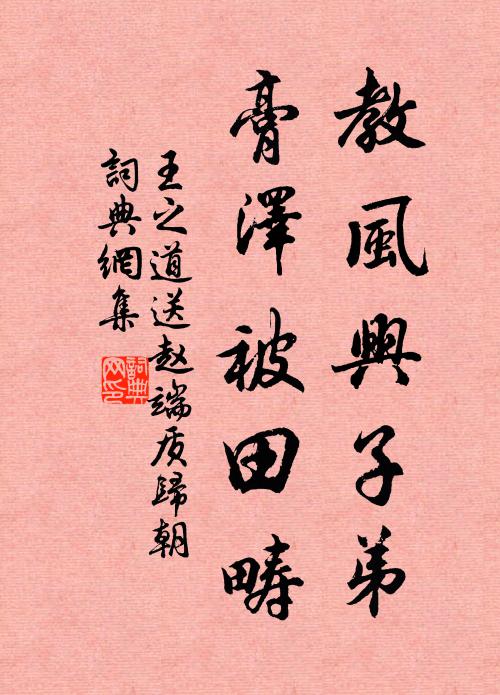 教風興子弟
膏澤被田疇
王之道送赵端质歸朝
詞典網集
詞典网印